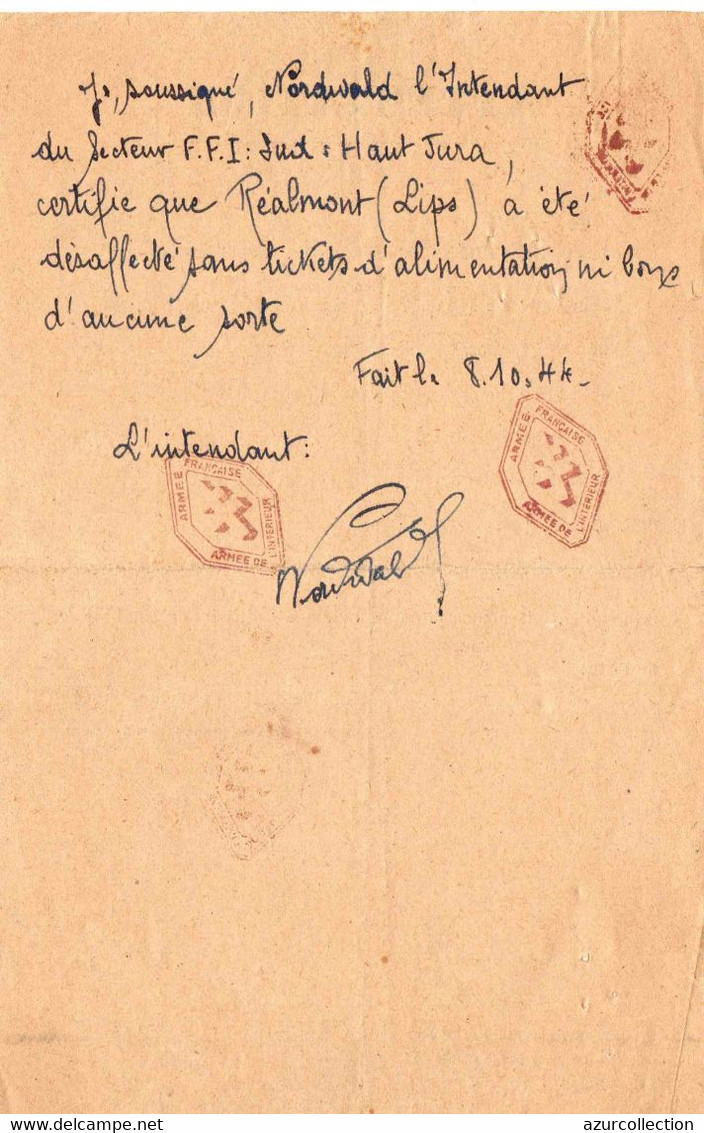 Je, soussigné, Nordwald l'Intendant
du Secteur F.F.I: Sud: Haut Jura,
certifie que Réalmont (Lips) a été
désaffecté sans tickets d'alimentation ni bons
d'aucune sorte
Fait le 8.10.44.
L'intendant:
ARMEE FRANÇAISE
ARMEE DE L'INTERIEUR
ARMEE FRANÇAISE
ARMEE DE L'INTERIEUR
Nordwald
azurcollection